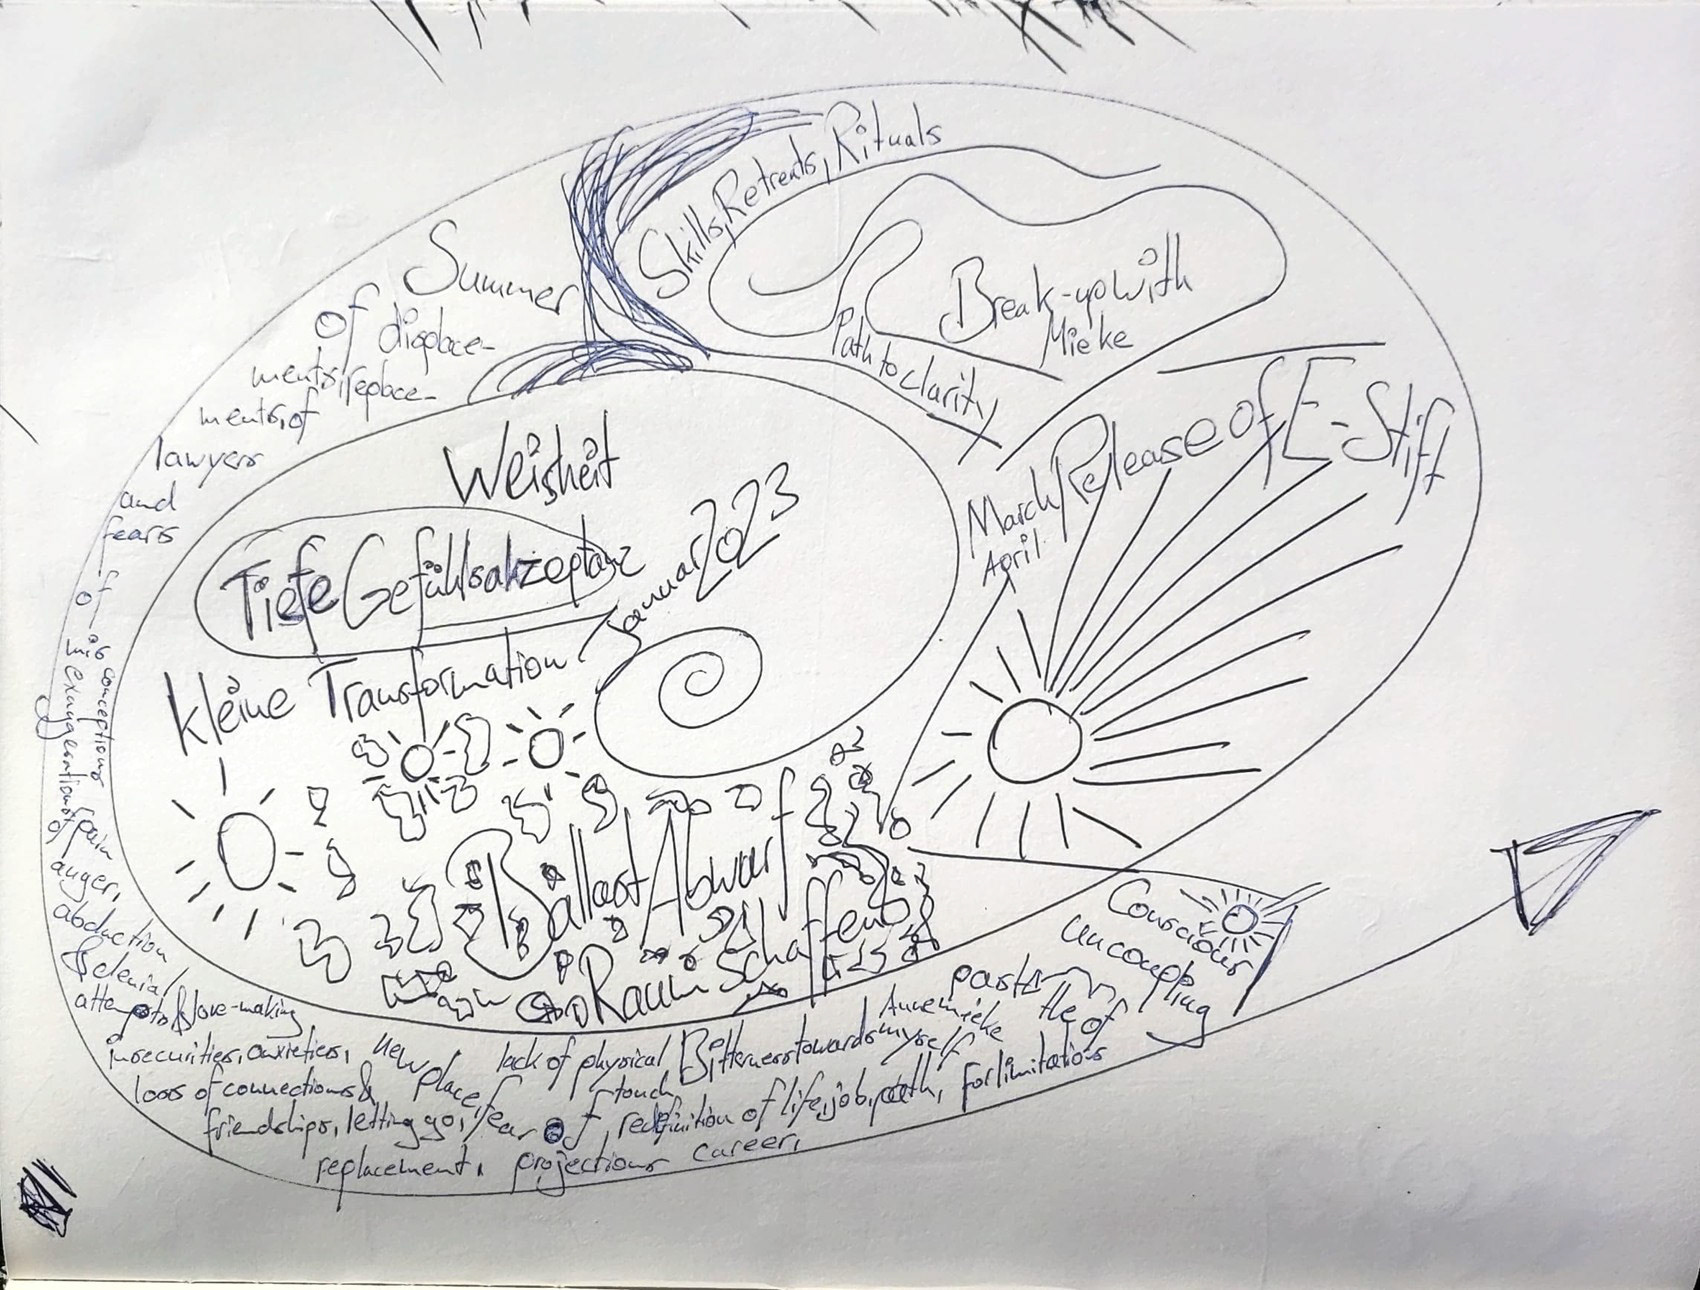 Skills, Retreats, Rituals
Break-up with
Mieke
Path to clarity
March Release of E-Stift
April
Summer
of displace-
ments, replace-
ments, of
lawyers
and
fears
of
misconceptions
exaggerations of pain
of
anger,
abduction
& denial,
attempts & love-making
insecurities, anxieties, new place,
loss of connections &
friendships, letting go, fear of
replacement, projections
lack of physical
touch,
redefinition of life, job, path,
career,
Bitterness towards myself
Annemieke
for limitations
of the past
Conscious
uncoupling
Weisheit
Tiefe Gefühlsakzeptanz
Januar 2023
kleine Transformation
Ballast Abwurf
Raum schaffen